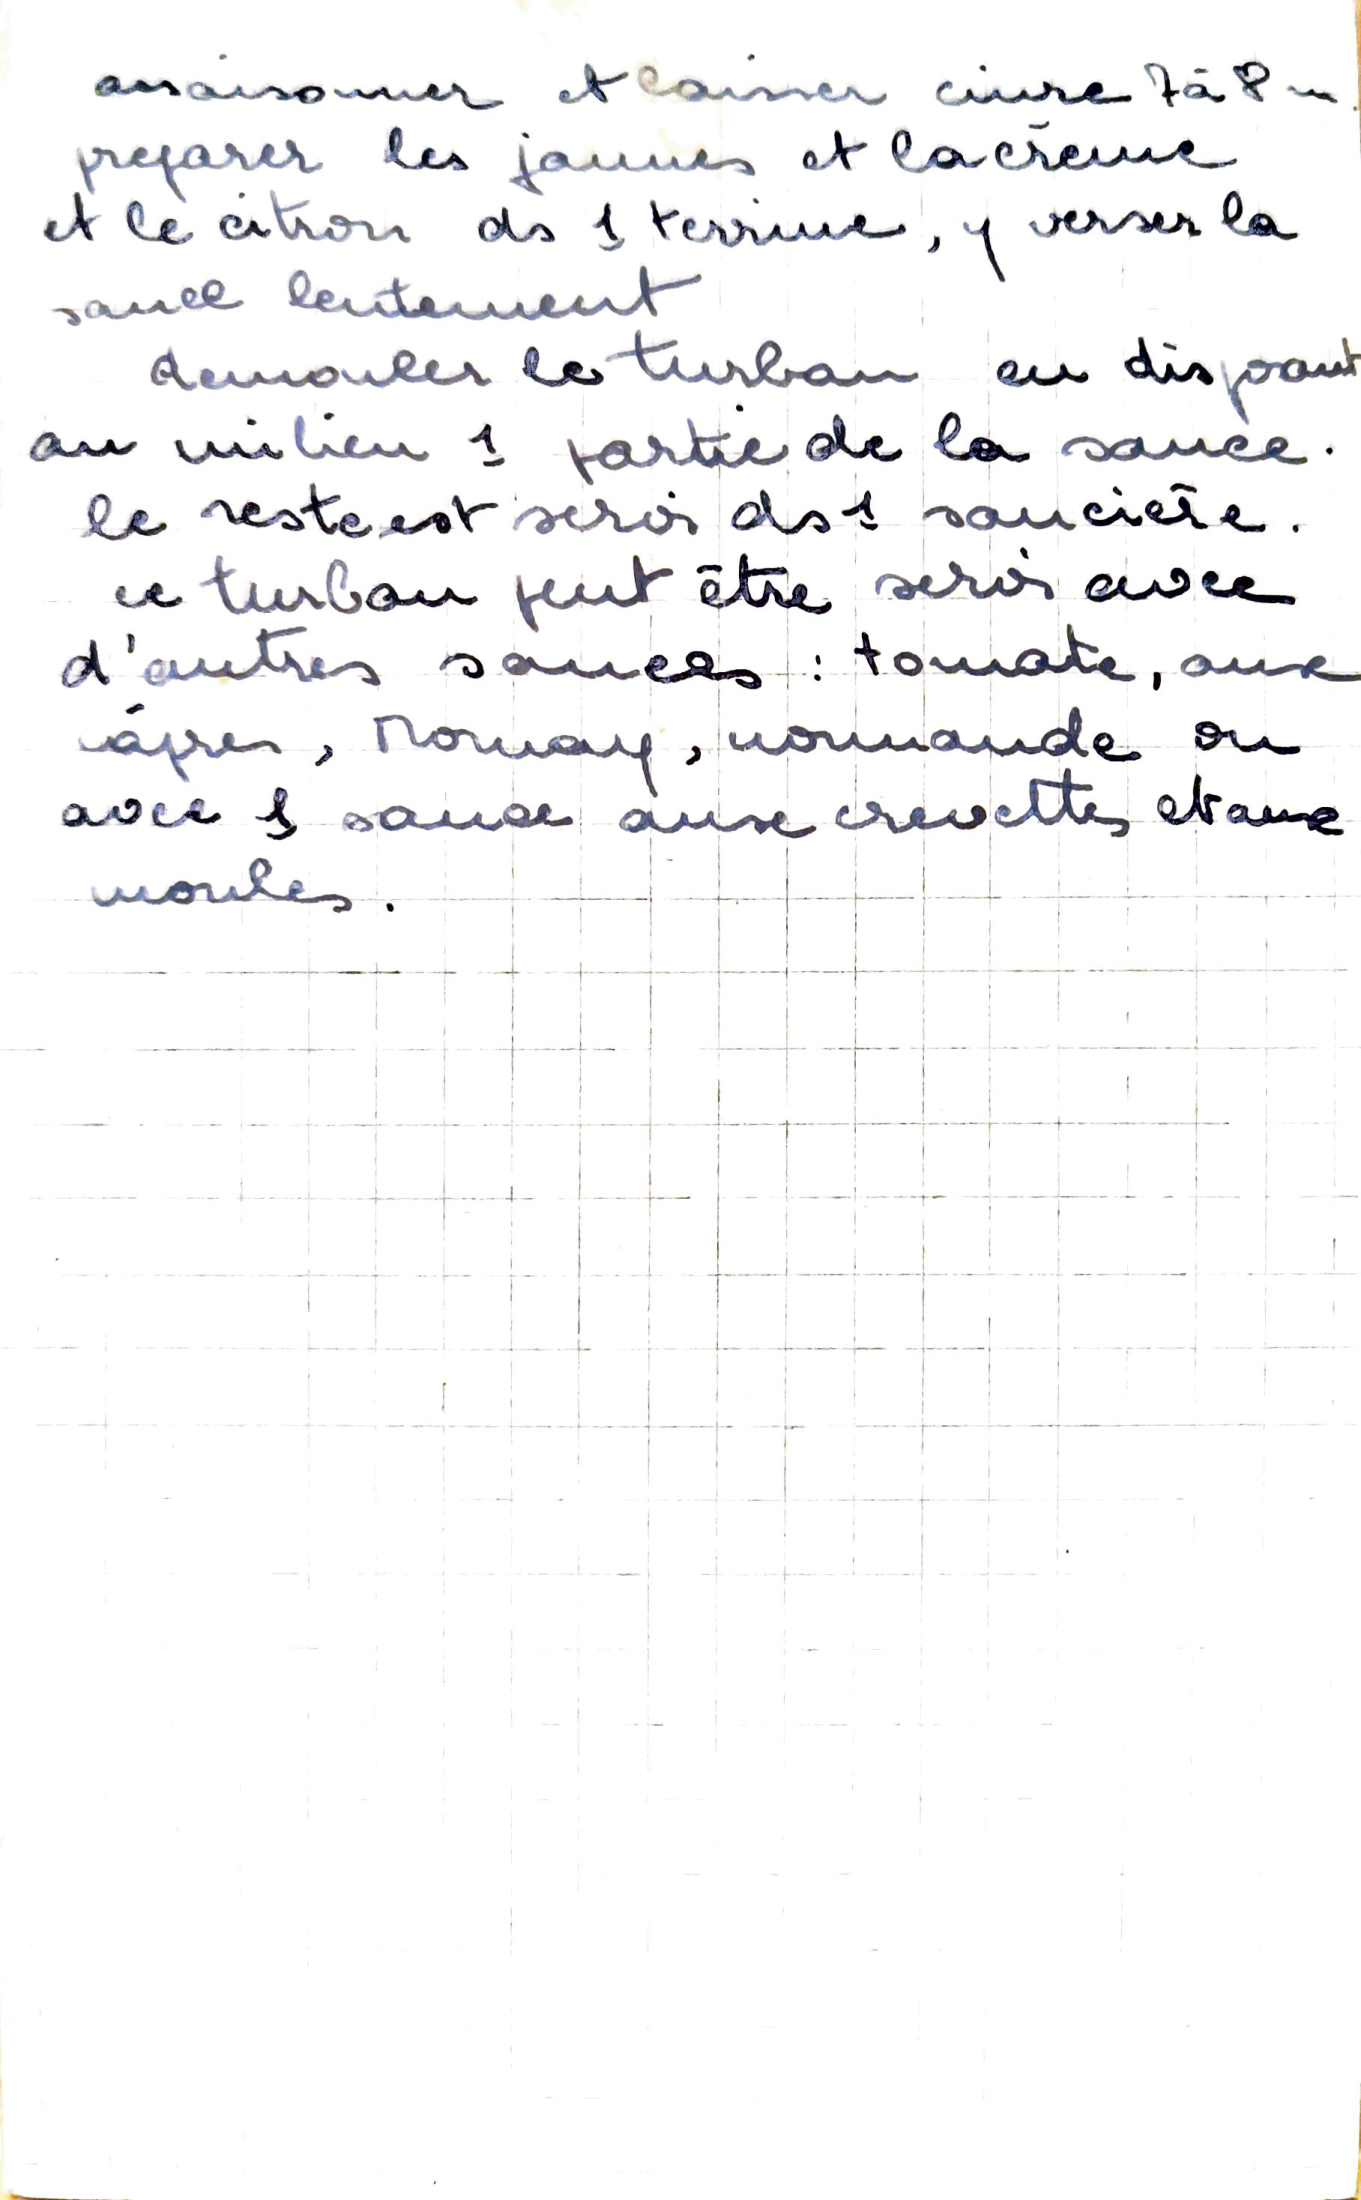 assaisonner et laisser cuire 7 à 8 m.
preparer les jaunes et la crème
et le citron ds 1 terrine, y verser la
sauce lentement
demouler le turban en dispoant
au milieu 1 partie de la sauce.
le reste est servi ds 1 saucière.
ce turban peut être servi avec
d'autres sauces : tomate, aux
câpres, Mornay, normande ou
avec 1 sauce aux crevettes et aux
moules.